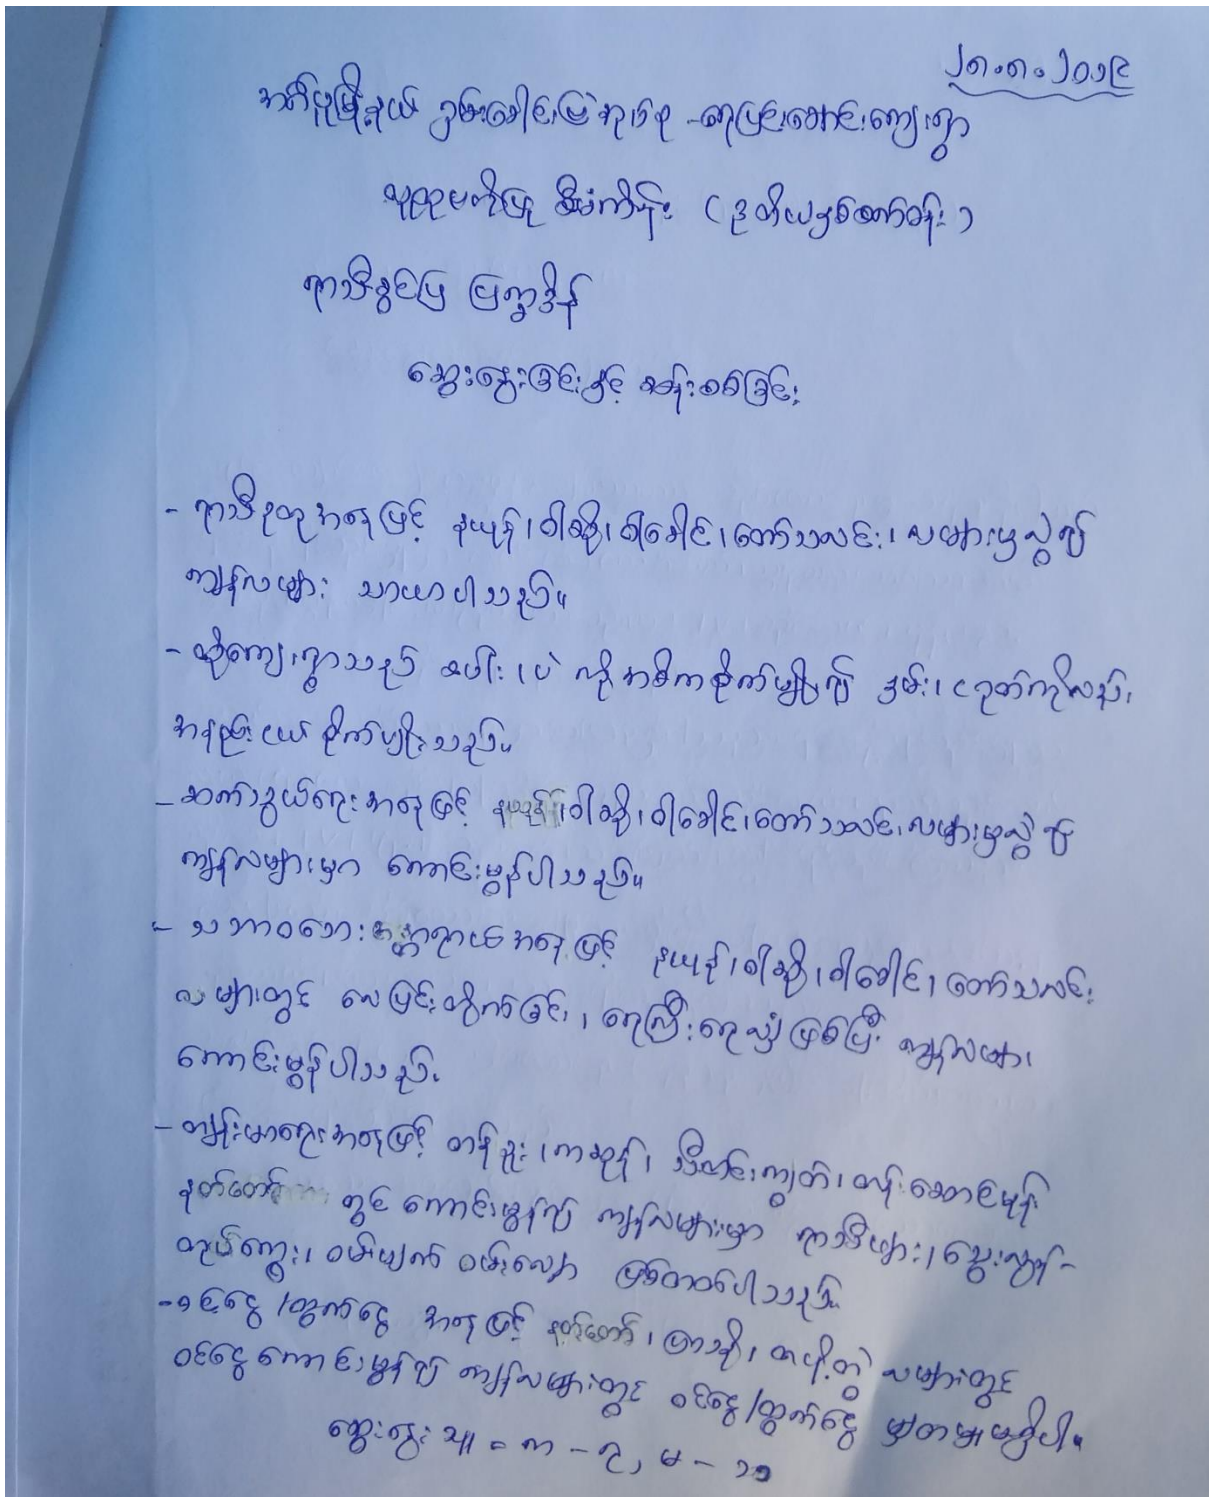 ၂၈.၈.၂၀၁၉
အုတ်ဖိုမြို့နယ် ငှမ်းခေါင်းမြဲအုပ်စု - ရေပြင်းအောင်းကျေးရွာ
လူထုဗဟိုပြု စီမံကိန်း (ဒုတိယနှစ်ထောက်ခန်း)
ရာသီခွင်ပြ ပြက္ခဒိန်
ဆွေးနွေးခြင်းနှင့် ဆန်းစစ်ခြင်း
- ရာသီဥတုအနေဖြင့် နယုန်၊ ဝါဆို၊ ဝါခေါင်၊ တော်သလင်း၊ လများမှလွဲ၍
ကျန်လများ သာယာပါသည်။
- ထိုကျေးရွာသည် စပါး၊ ပဲ ကို အဓိကစိုက်ပျိုး၍ နှမ်း၊ ငရုတ်ကိုလည်း
အနည်းငယ် စိုက်ပျိုးသည်။
- ဆက်သွယ်ရေးအနေဖြင့် နယုန်၊ ဝါဆို၊ ဝါခေါင်၊ တော်သလင်း လများမှလွဲ၍
ကျန်လများမှာ ကောင်းမွန်ပါသည်။
- သဘာဝဘေးအန္တရာယ်အနေဖြင့် နယုန်၊ ဝါဆို၊ ဝါခေါင်၊ တော်သလင်း
လများတွင် လေပြင်းတိုက်ခြင်း၊ ရေကြီးရေလျှံဖြစ်ပြီး ကျန်လများ
ကောင်းမွန်ပါသည်။
- ကျန်းမာရေးအနေဖြင့် တန်ခူး၊ ကဆုန်၊ သီတင်းကျွတ်၊ တန်ဆောင်မုန်း
နတ်တော် တွင် ကောင်းမွန်၍ ကျန်လများမှာ ရာသီဖျား၊ သွေးလွန်-
တုပ်ကွေး၊ ဝမ်းပျက် ဝမ်းလျှော ဖြစ်တတ်ပါသည်။
- ဝင်ငွေ/ထွက်ငွေ အနေဖြင့် နတ်တော်၊ ပြာသို၊ တပို့တွဲ လများတွင်
ဝင်ငွေကောင်းမွန်၍ ကျန်လများတွင် ဝင်ငွေ/ထွက်ငွေ မျှတမှုမရှိပါ။
ဆွေးနွေးသူ = ကျ - ၃, မ - ၁၁